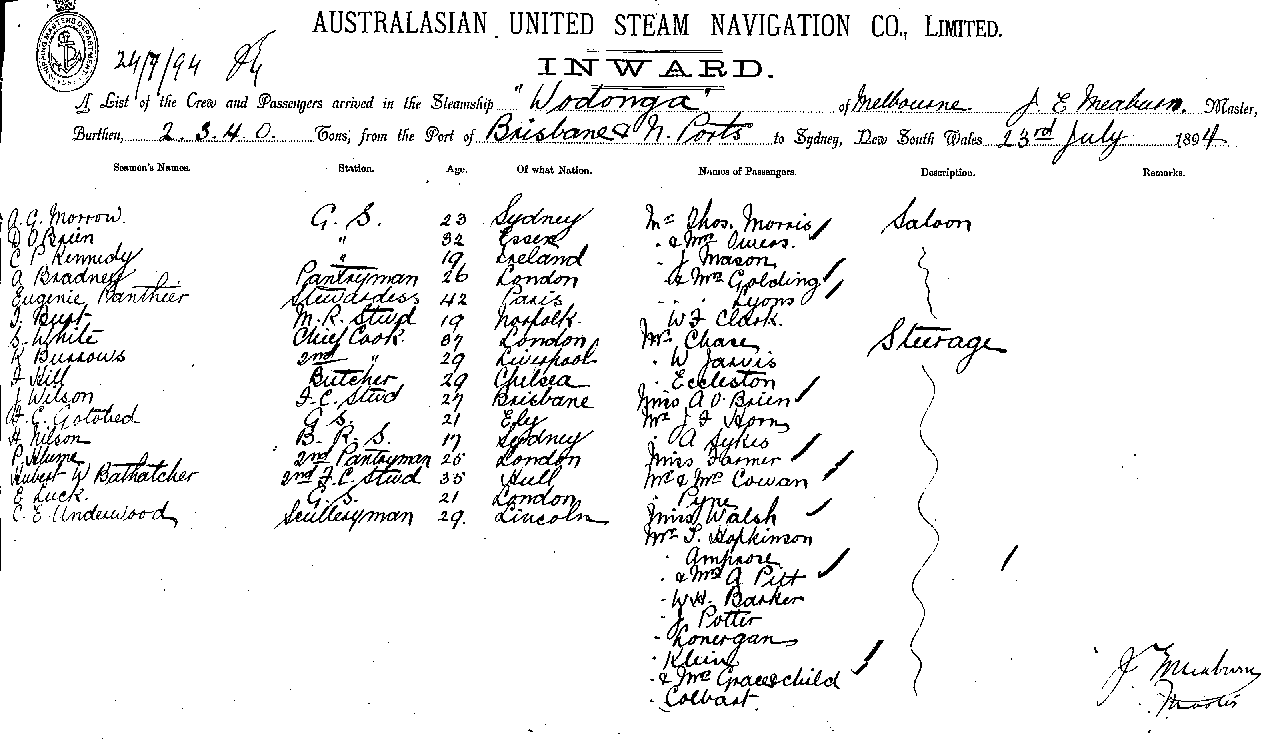 AUSTRALASIAN UNITED STEAM NAVIGATION CO., LIMITED.
24/7/94
INWARD.
A List of the Crew and Passengers arrived in the Steamship "Wodonga" of Melbourne J. E Meaburn. Master,
Burthen, 2.340. Tons, from the Port of Brisbane & N. Ports to Sydney, New South Wales 23rd July 1894
Seamen's Names. Station. Age. Of what Nation. Names of Passengers. Description. Remarks.
A. G. Morrow. G. S. 23 Sydney Mr Thos. Morris Saloon
D O'Brien " 32 Essex " & Mrs Owens.
C P Kennedy " 19 Ireland " J Mason
A Bradney Pantryman 26 London " & Mrs Golding
Eugenie Panthier Stewardess 42 Paris " " " Lyons
J Burt M. R. Stwd 19 Norfolk " W J Clark.
S. White Chief Cook 37 London Mr Chase Steerage
R Burrows 2nd " 29 Liverpool " W Jarvis
J Hill Butcher 29 Chelsea " Eccleston
J Wilson F. C. Stwd 27 Brisbane Miss A O'Brien
H. C. Gotobed G S. 21 Ely Mr J J Horn
H Nilson B. R. S. 17 Sydney " A Sykes
P Hume 2nd Pantryman 25 London Miss Farmer
Hubert W Bathatcher 2nd F. C. Stwd 35 Hull Mr & Mrs Cowan
E Luck. G. S. 21 London " Pyne
C. E Underwood Sculleryman 29. Lincoln Miss Walsh
Mr T. Hopkinson
" Amprose
" & Mrs A Pitt
" W H. Barker
" J Potter
" Lonergan
" Klein
" & Mrs Graceschild
" Colbart.
J. E Meaburn
Master